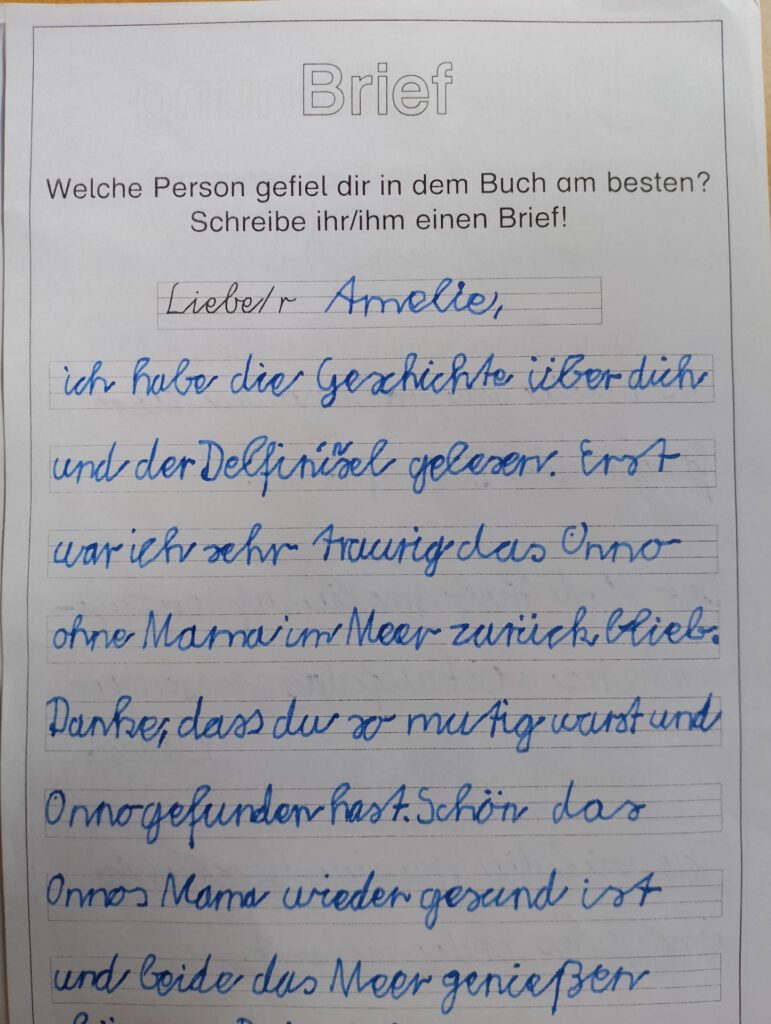 Brief
Welche Person gefiel dir in dem Buch am besten?
Schreibe ihr/ihm einen Brief!
Liebe/r Amelie,
ich habe die Geschichte über dich
und der Delfininsel gelesen. Erst
war ich sehr traurig das Onno
ohne Mama im Meer zurück blieb.
Danke, dass du so mutig warst und
Onno gefunden hast. Schön das
Onnos Mama wieder gesund ist
und beide das Meer genießen